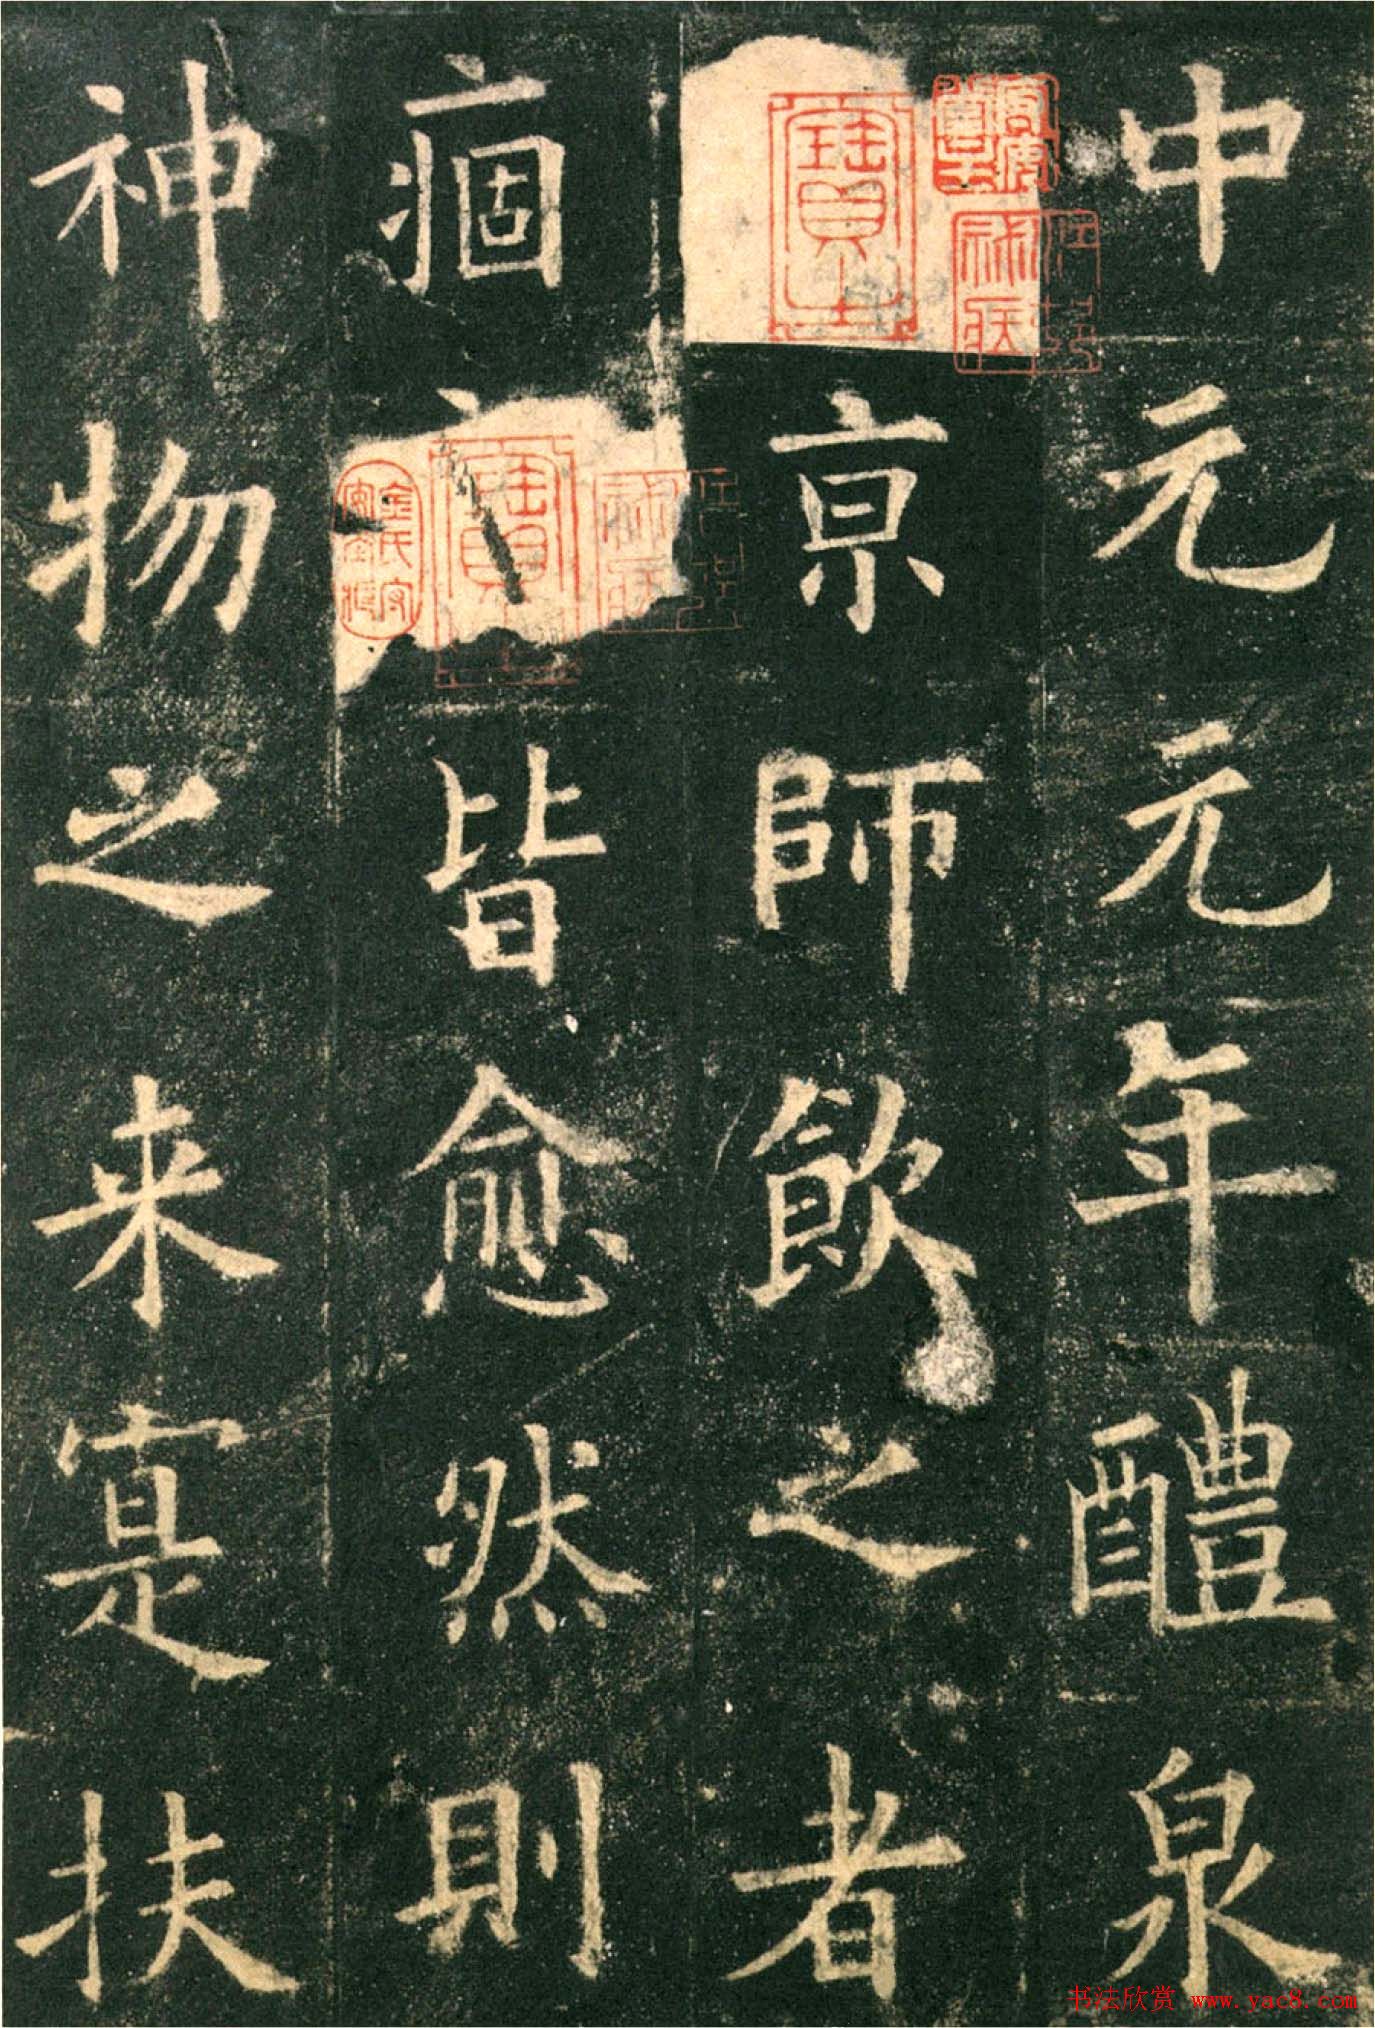 中元元年醴泉
亰師飲之者
痼皆愈然則
神物之来寔扶
书法欣赏 www.yac8.com